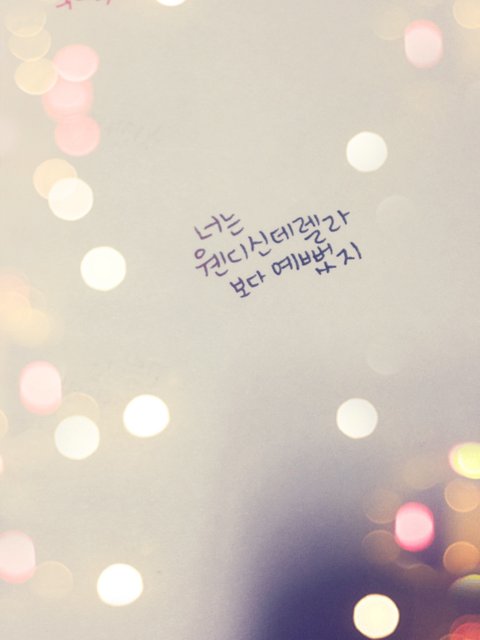 너는
웬디신데렐라
보다 예뻤지